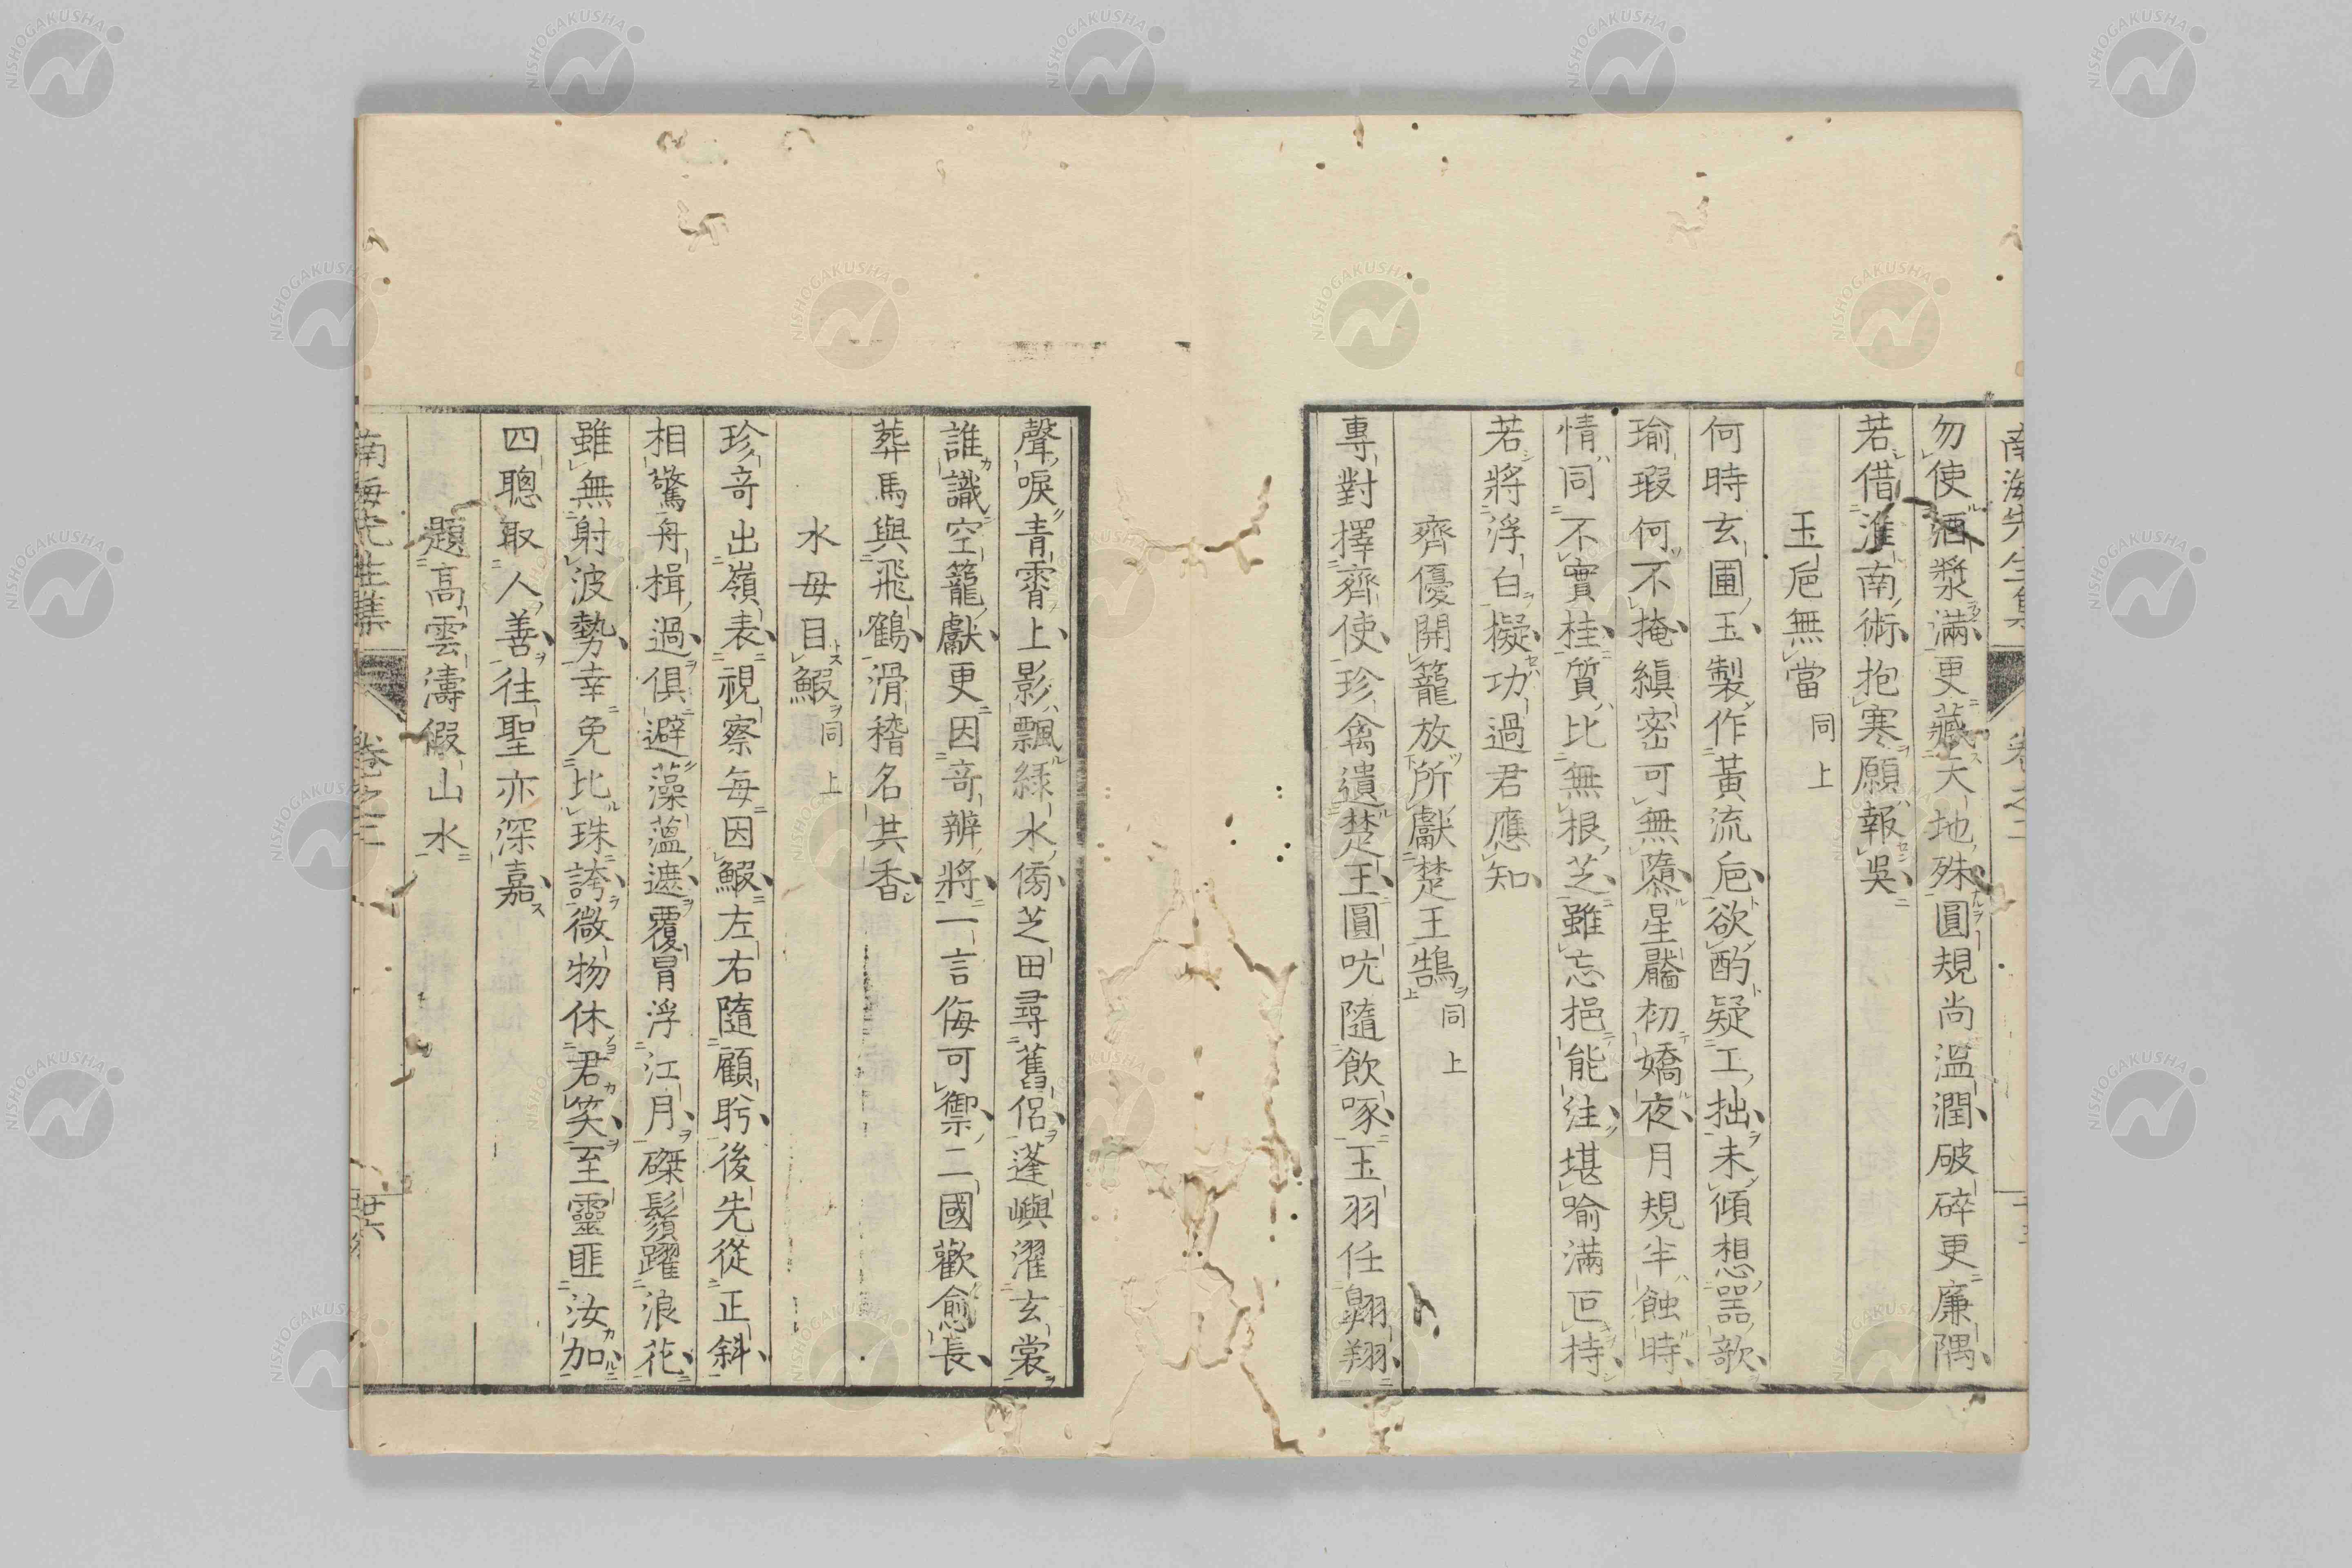 南海先生集 卷之二
勿使酒漿滿更藏天地殊圓規尚溫潤破碎更廉隅
若借淮南術抱寒願報吳
玉巵無當 同上
何時玄圃玉製作黃流巵欲酌疑工拙未傾想噐歌
瑜瑕何不掩縝密可無隳星靨初嬌夜月規半蝕時
情同不實桂質比無根芝雖忘挹能注堪喻滿叵持
若將浮白擬功過君應知
齊優開籠放所獻楚王鵠 同上
專對擇齊使珍禽遺楚王圓吭隨飮啄玉羽任翺翔
聲唳青霄上影飄綠水傍芝田尋舊侶蓬嶼濯玄裳
誰識空籠獻更因竒辨將一言侮可禦二國歡愈長
葬馬與飛鶴滑稽名共香
水母目鰕 同上
珍竒出嶺表視察每因鰕左右隨顧眄後先從正斜
相驚舟楫過俱避藻薀遮覆冒浮江月磔鬚躍浪花
雖無射波勢幸免比珠誇微物休君笑至靈匪汝加
四聰取人善往聖亦深嘉
題高雲濤假山水
南海先生集 卷之二